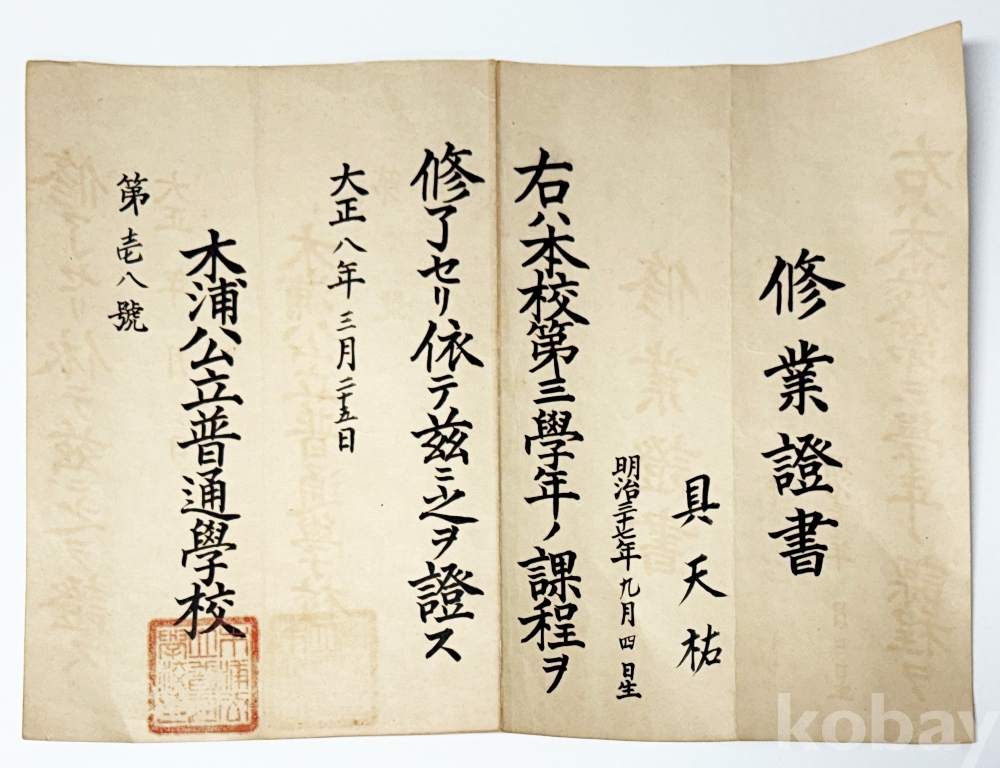 修業證書
具天祐
明治三十七年九月四日生
右ハ本校第三學年ノ課程ヲ
修了セリ依テ茲ニ之ヲ證ス
大正八年三月二十五日
木浦公立普通學校
第壱八號
kobay